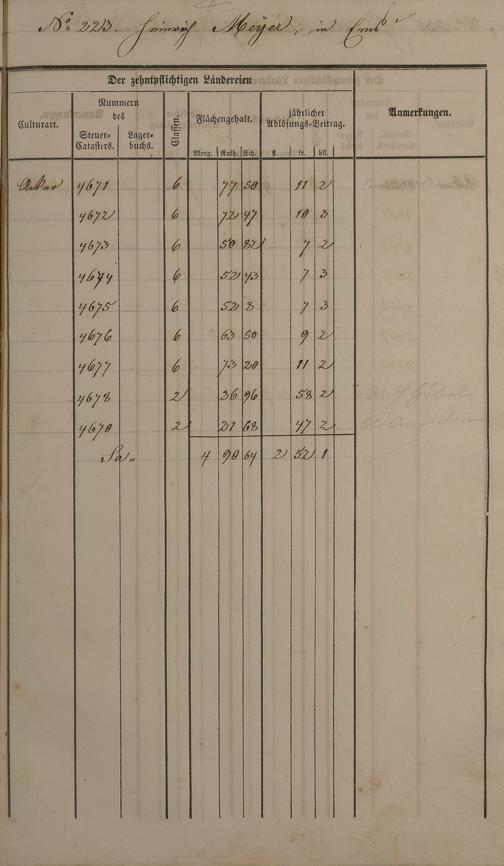 No. 223. Heinrich Meÿer, in Ems
Der zehntpflichtigen Ländereien
Culturart. Nummern des Classen. Flächengehalt. jährlicher Ablösungs-Beitrag. Anmerkungen.
Steuer-Catasters. Lager-buchs.
Morg. Ruth. Sch. fl. kr. hll.
Acker 4671 6 77 50 11 2
4672 6 72 47 10 3
4673 6 50 82 7 2
4674 6 52 43 7 3
4675 6 52 8 7 3
4676 6 63 50 9 2
4677 6 73 20 11 2
4678 2 26 96 58 2
4670 2 21 68 47 2
Sa 4 90 64 2 52 1